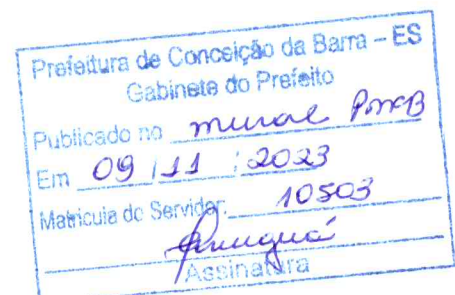 Prefeitura de Conceição da Barra - ES
Gabinete do Prefeito
Publicado no mural PMCB
Em 09 / 11 / 2023
Matricula do Servidor: 10503
Assinatura